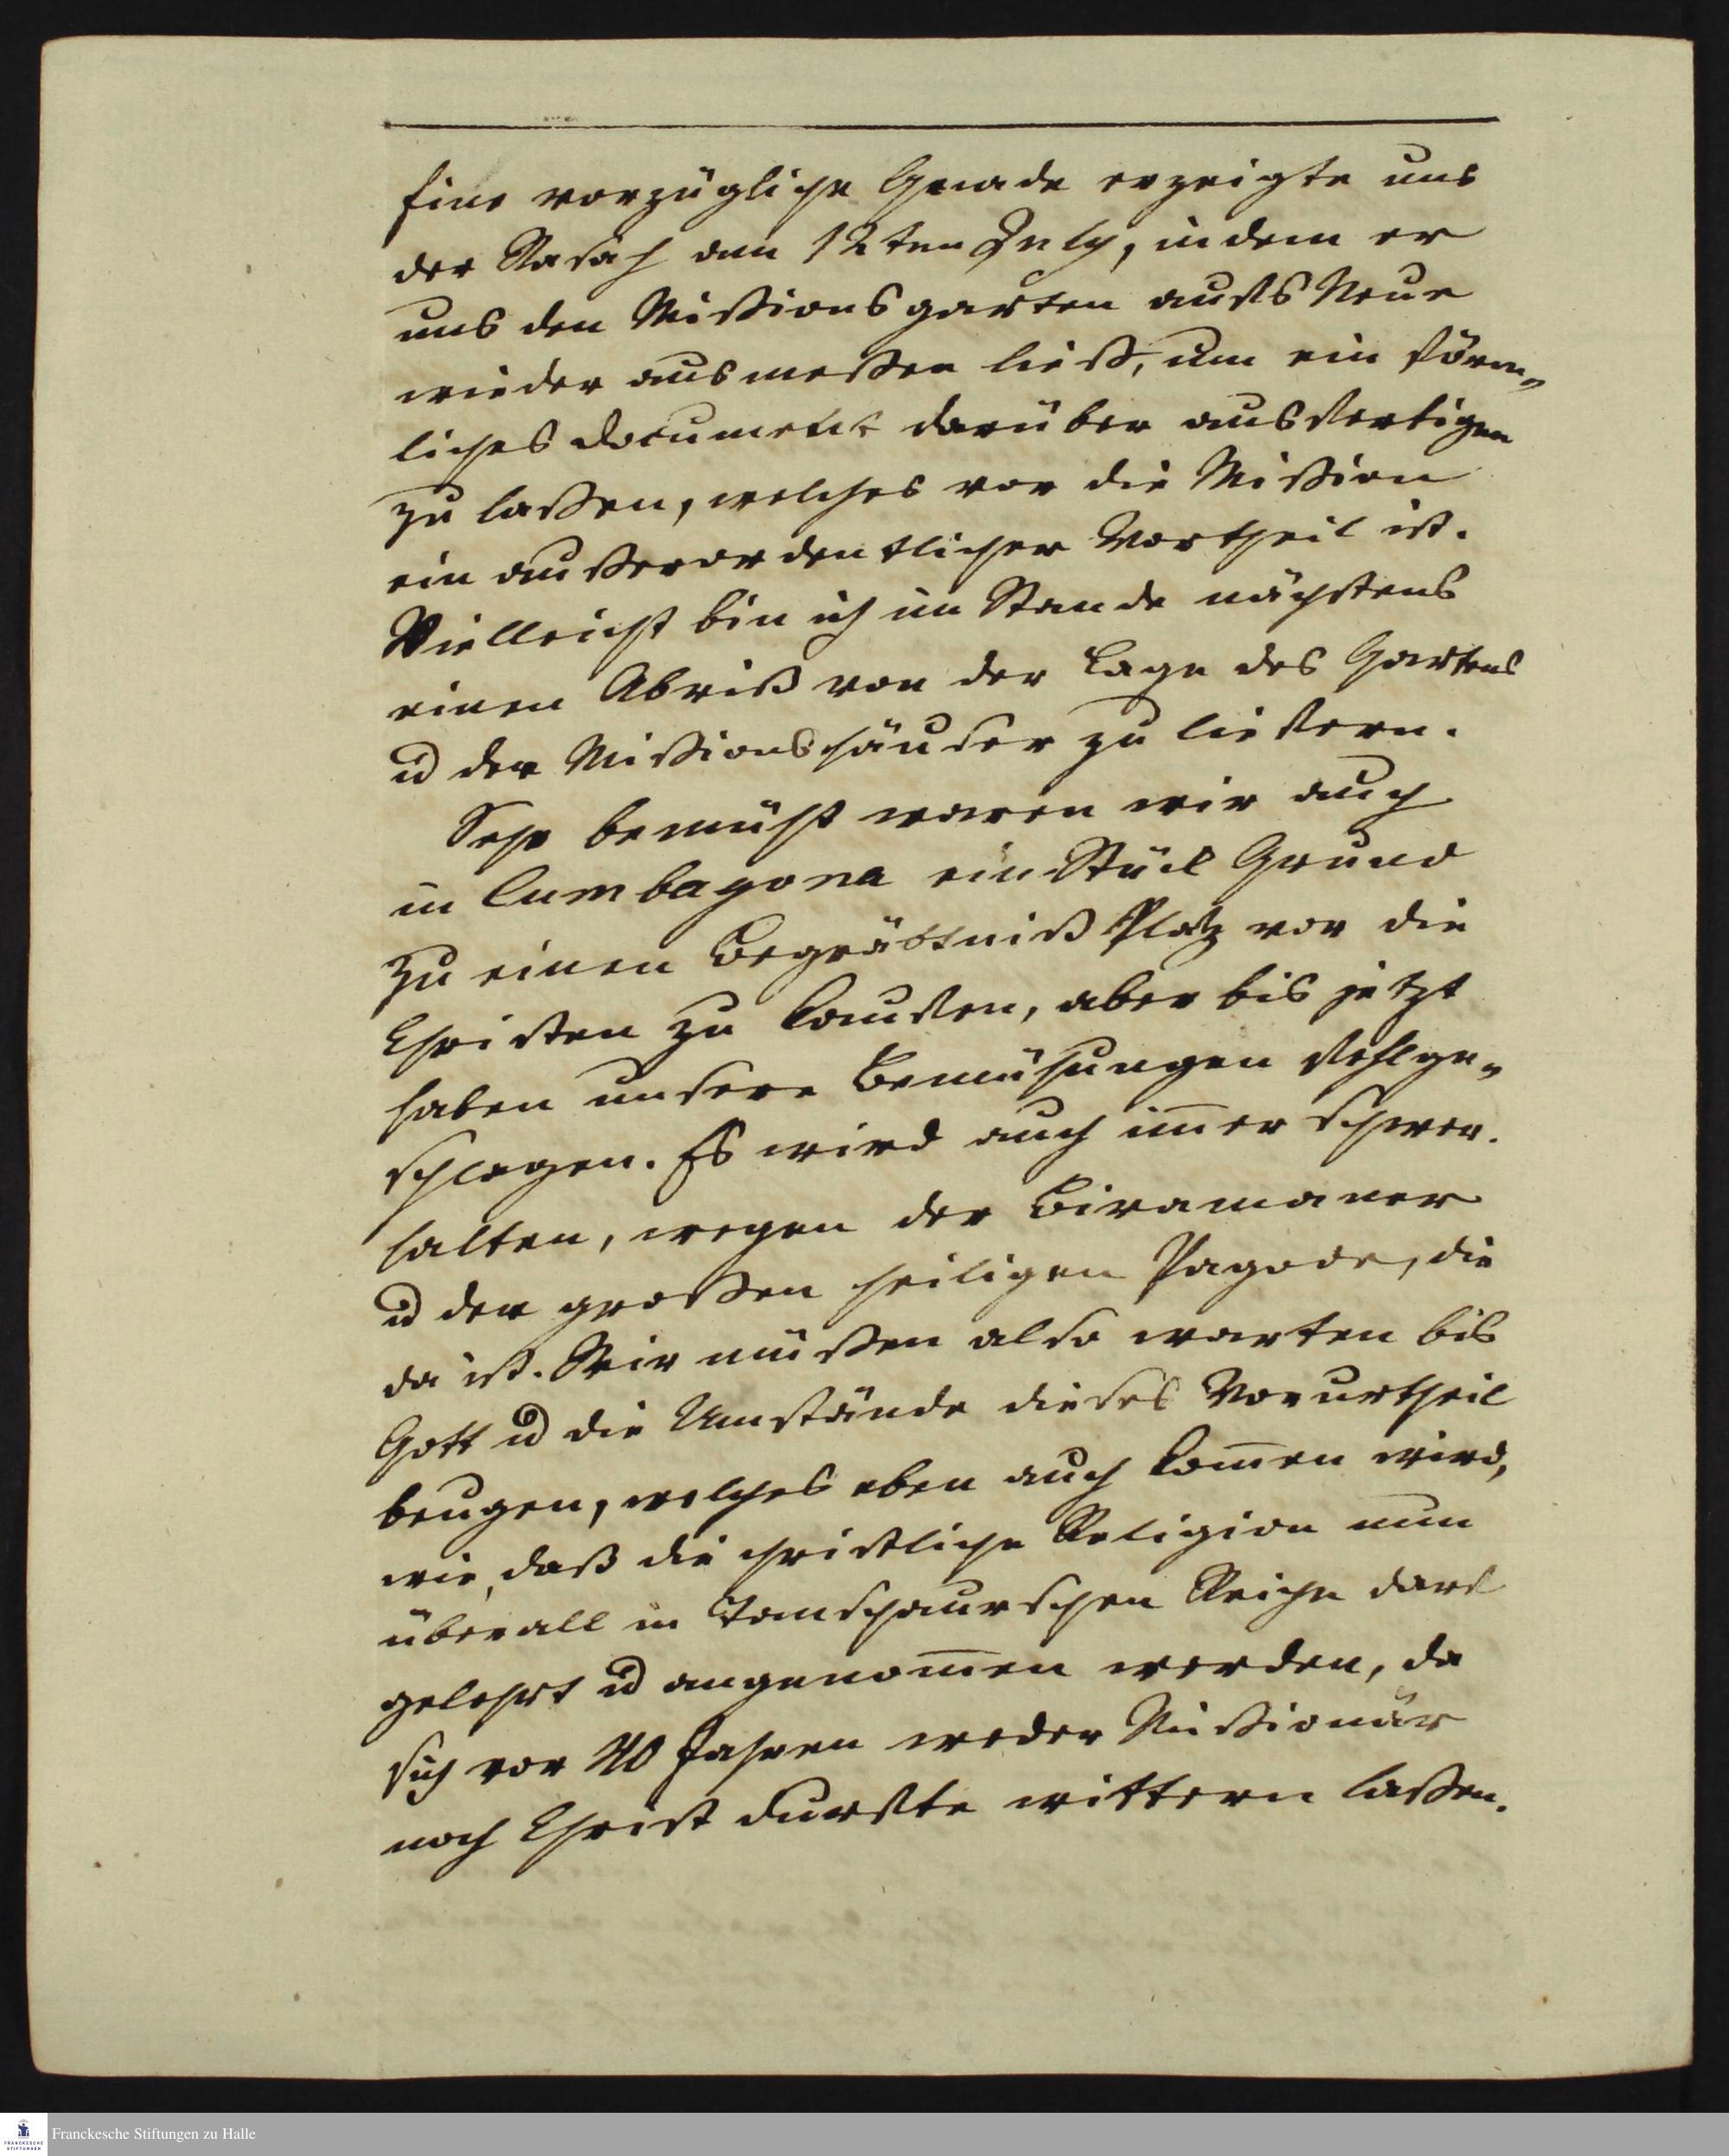 Eine vorzügliche Gnade erzeigte uns
der Rasah den 12ten July, indem er
uns den Mißionsgarten aufs Neue
wieder ausmeßen ließ, um ein förm„
liches Document darüber ausfertigen
zu laßen, welches vor die Mißion
ein außerordentlicher Vortheil ist.
Vielleicht bin ich im Stande nächstens
einen Abriß von der Lage des Gartens
ud der Mißionshäuser zu liefern.
Sehr bemüht waren wir auch
in Cumbagona ein Stück Grund
zu einen Begräbtniß Platz vor die
Christen zu kaufen, aber bis jetzt
haben unsere Bemühungen fehlge„
schlagen. Es wird auch im̅er schwer
halten, wegen der Biramaner
ud der großen heiligen Pagode, die
da ist. Wir müßen also warten bis
Gott ud die Umstände dieses Vorurtheil
beugen, welches eben auch kom̅en wird,
wie, daß die christliche Religion nun
überall in Tanschaurschen Reiche darf
gelehrt ud angenom̅en werden, da
sich vor 40 Jahren weder Mißionär
noch Christ durfte wittern laßen.
Franckesche Stiftungen zu Halle
FRANCKESCHE
STIFTUNGEN